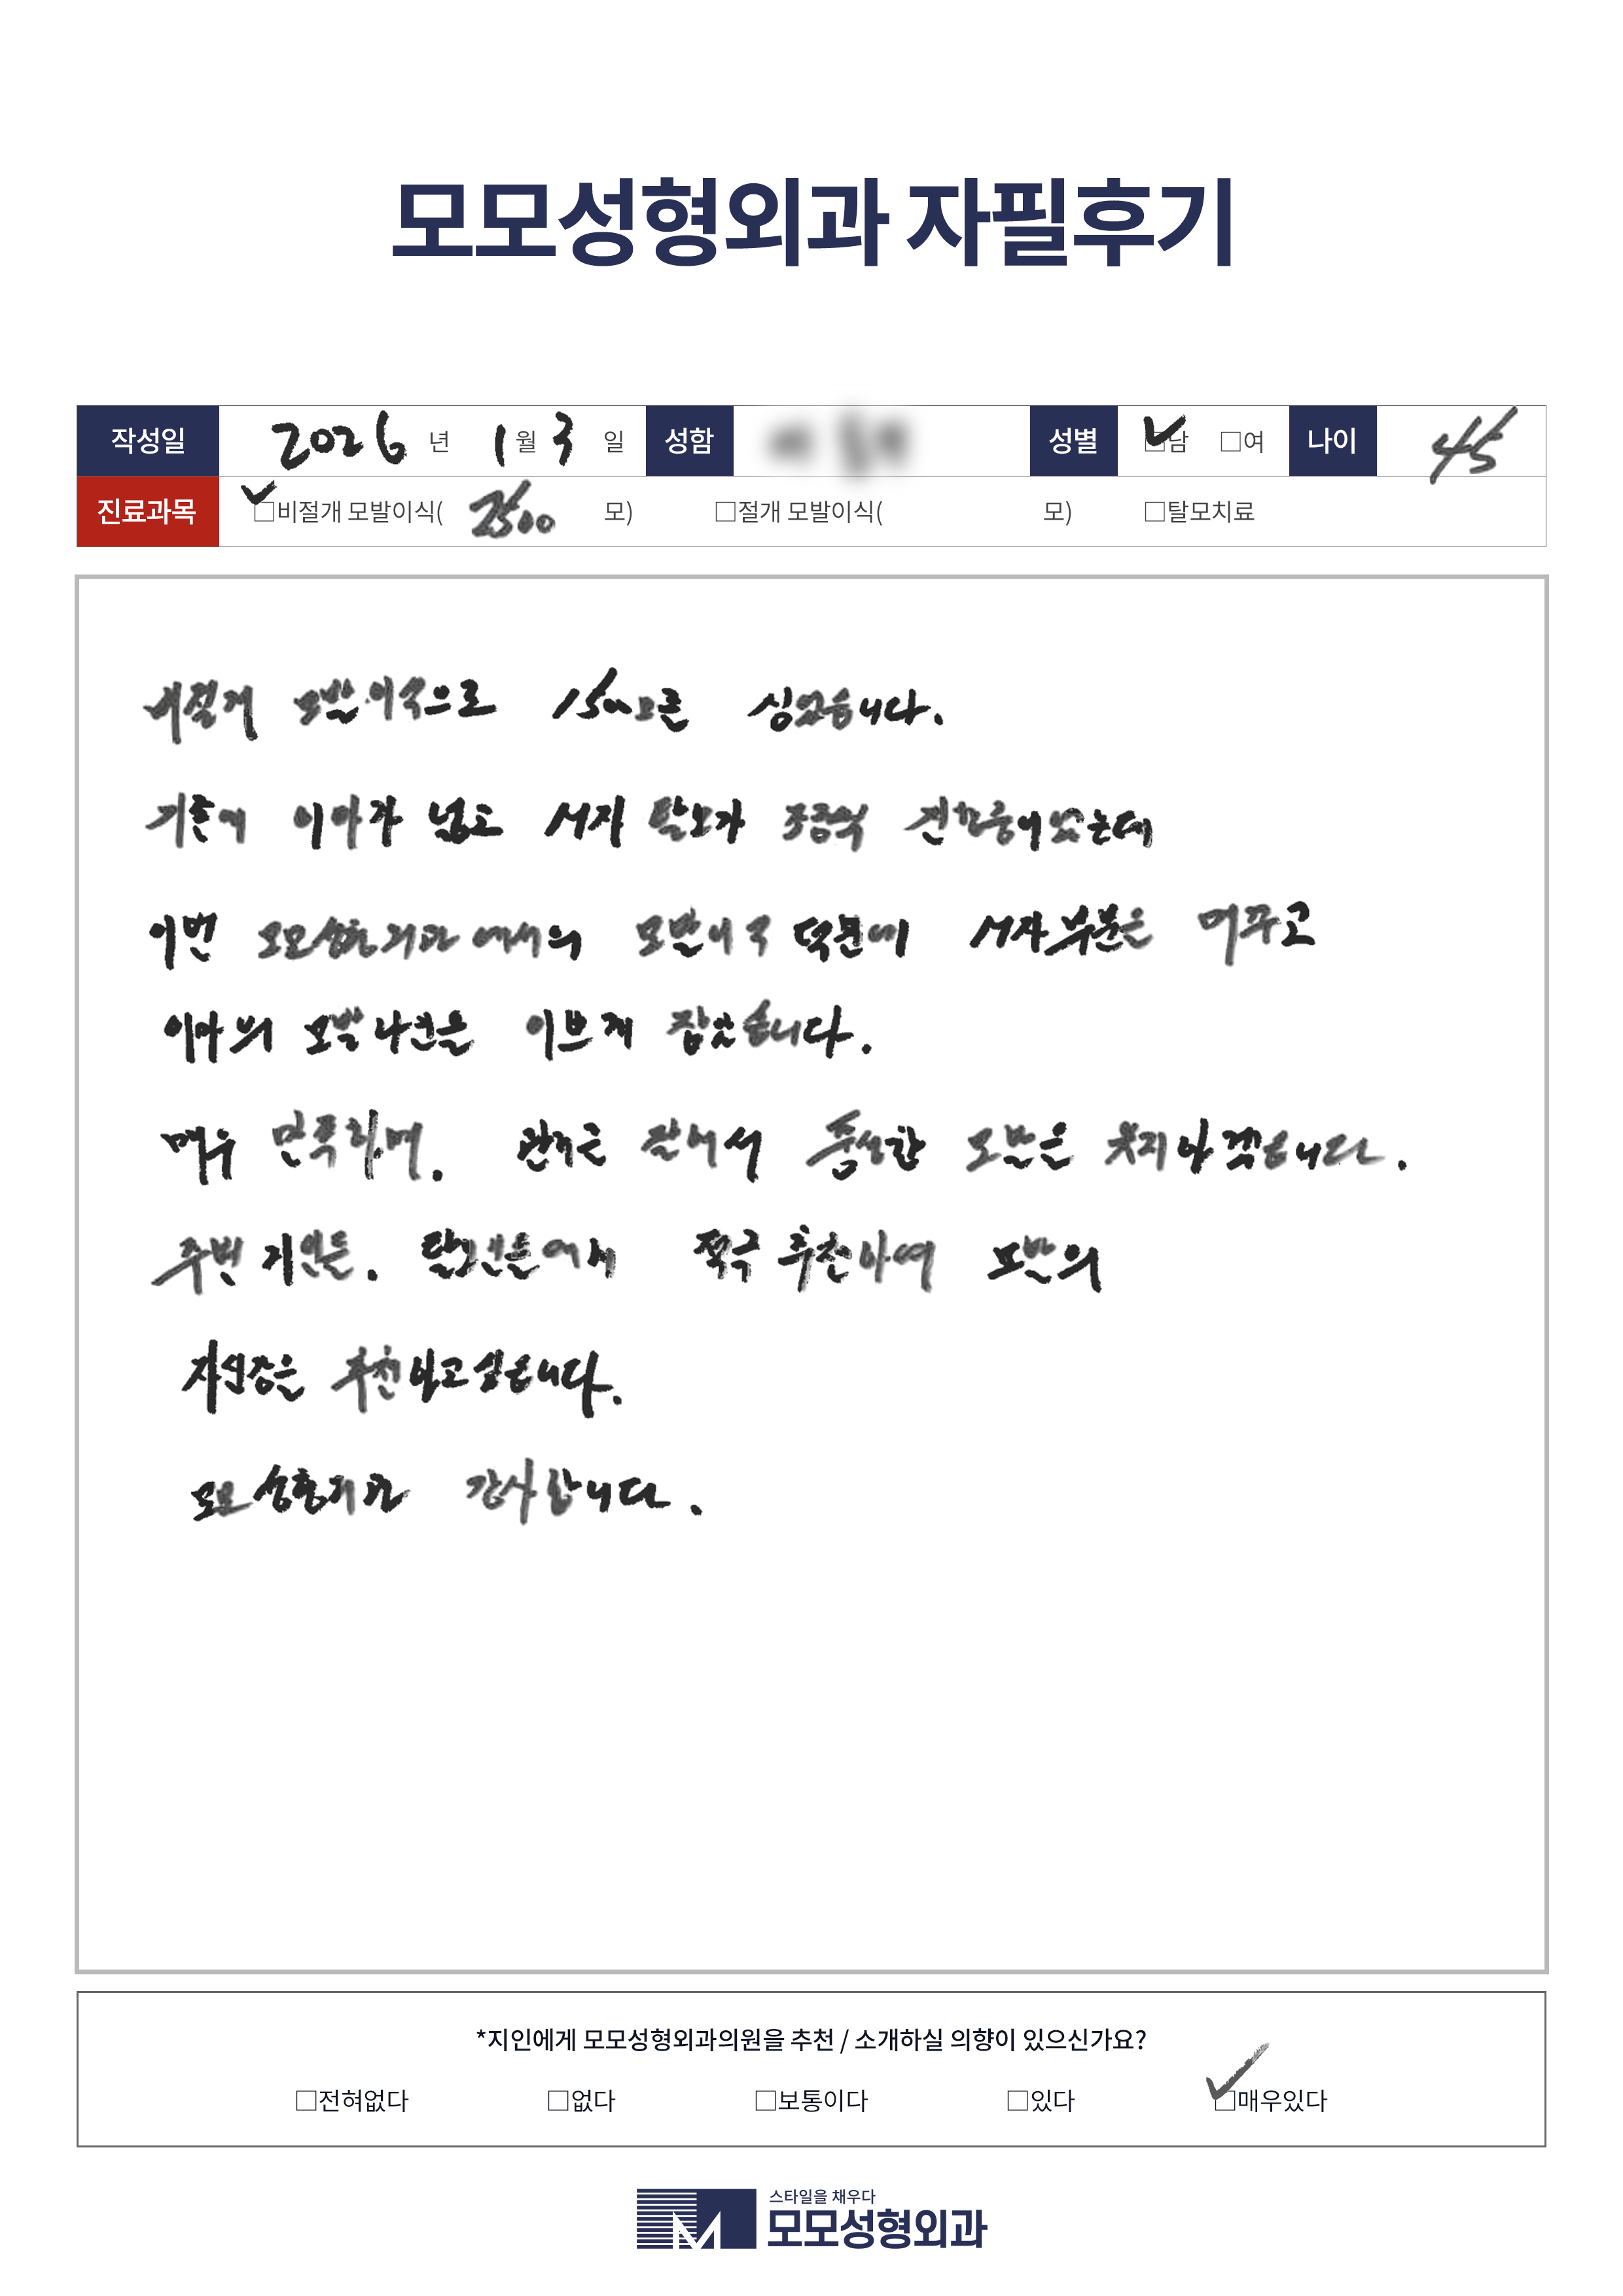 모모성형외과 자필후기
작성일 2026 년 1 월 3 일 성함 성별 □남 □여 나이 45
진료과목 □비절개 모발이식( 2500 모) □절개 모발이식( 모) □탈모치료
비절개 모발이식으로 1500모를 심었습니다.
기존에 이마가 넓고 M자 탈모가 조금씩 진행중이었는데
이번 모모성형외과에서의 모발이식 덕분에 M자부분은 메꾸고
이마의 모발라인을 이쁘게 잡았습니다.
매우 만족하며. 관리를 잘해서 소중한 모발을
주변 지인들. 탈모인들에게 적극 추천하며 모발의
자신감을 추천하고싶습니다.
모모성형외과 감사합니다.
*지인에게 모모성형외과의원을 추천 / 소개하실 의향이 있으신가요?
□전혀없다 □없다 □보통이다 □있다 □매우있다
스타일을 채우다
모모성형외과